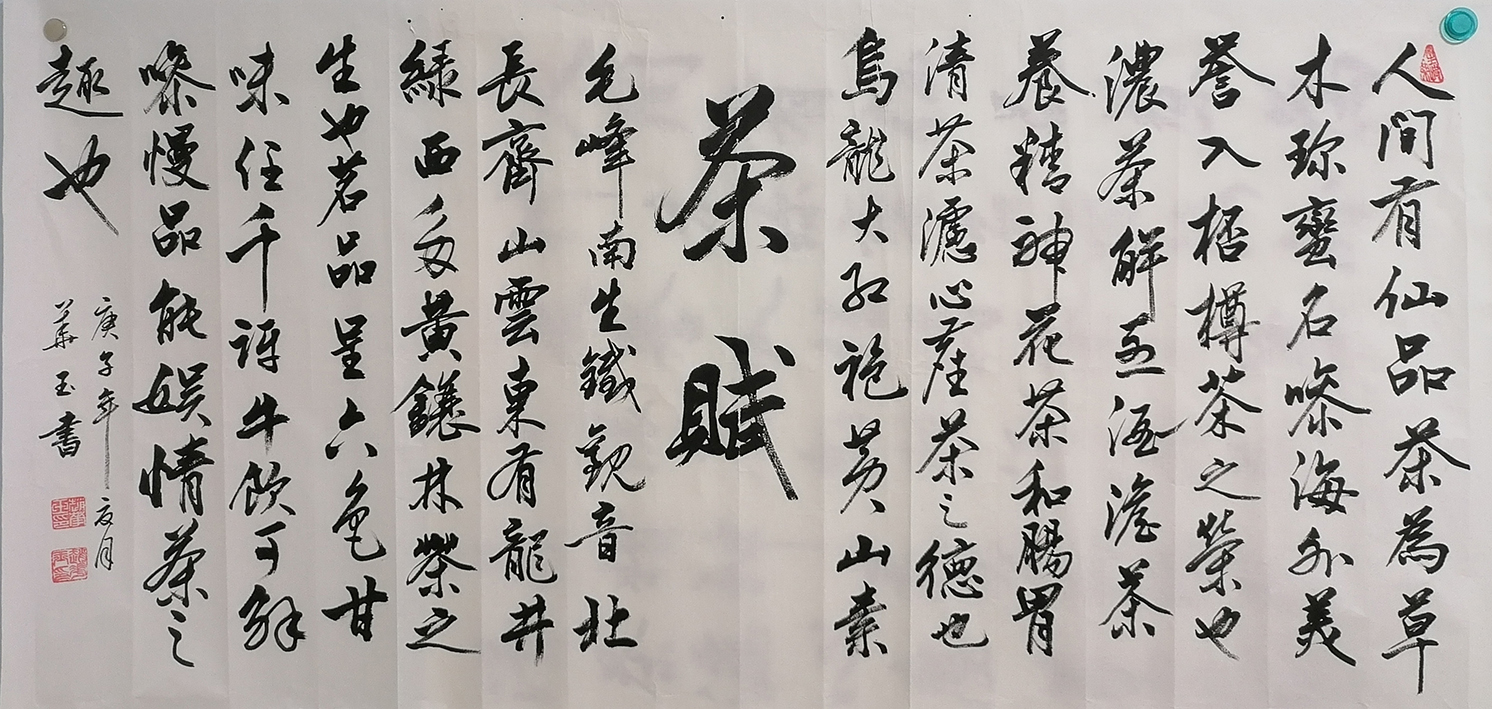 人間有仙品茶為草
木珎蜚名噪海外美
譽入桮樽茶之榮也
濃茶解烈酒澹茶
養精神花茶和腸胃
清茶濾心塵茶之德也
烏龍大紅袍黃山素
茶賦
毛峰南生鐵觀音北
長齊山雲東有龍井
綠西多黃鑲林茶之
生也茗品呈六色甘
味任千評牛飲可解
噪慢品能娛情茶之
趣也
庚子年夏月
華玉書